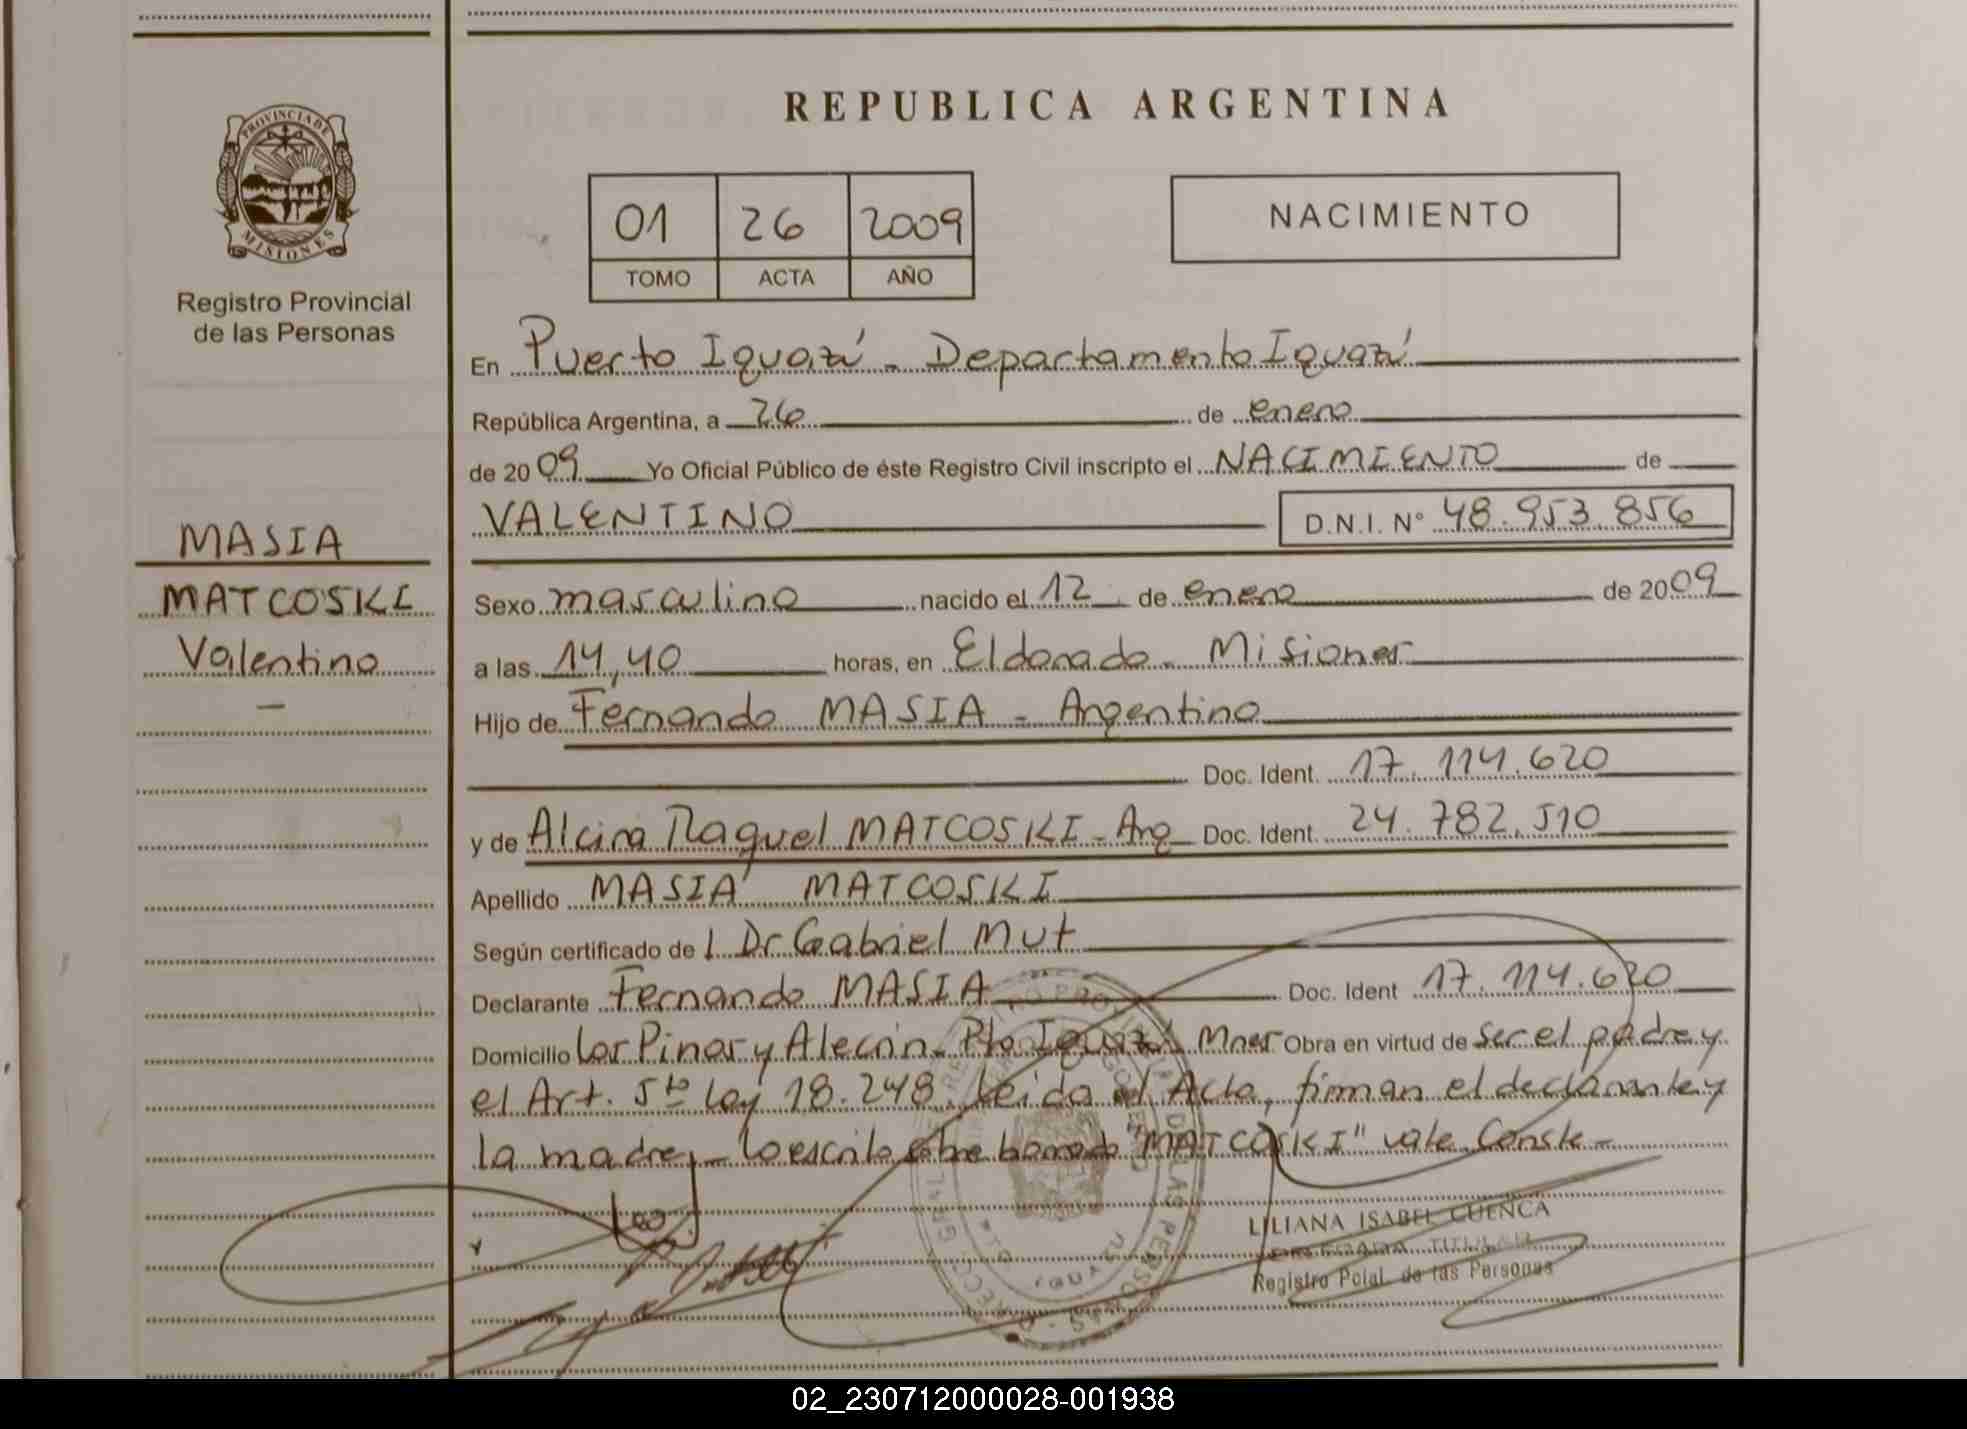 REPUBLICA ARGENTINA
PROVINCIA DE
MISIONES
Registro Provincial
de las Personas
01 26 2009
TOMO ACTA AÑO
NACIMIENTO
En Puerto Iguazú - Departamento Iguazú
República Argentina, a 26 de enero
de 2009 Yo Oficial Público de éste Registro Civil inscripto el NACIMIENTO de
VALENTINO D.N.I. N° 48.953.856
MASIA
MATCOSKI
Valentino
-
Sexo masculino nacido el 12 de enero de 2009
a las 14,40 horas, en Eldorado - Misiones
Hijo de Fernando MASIA - Argentino
Doc. Ident. 17.114.620
y de Alcira Raquel MATCOSKI - Arg Doc. Ident. 24.782.510
Apellido MASIA' MATCOSKI
Según certificado de l Dr Gabriel Mut
Declarante Fernando MASIA Doc. Ident 17.114.620
Domicilio Los Pinos y Alecrín - Pto Iguazú Mnes Obra en virtud de ser el padre y
el Art. 5to Ley 18.248. Leida el Acta, firman el declarante y
la madre - lo escrito sobre borrado "MATCOSKI" vale. Conste -
LILIANA ISABEL CUENCA
DELEGADA TITULAR
Registro Pcial. de las Personas
02_230712000028-001938